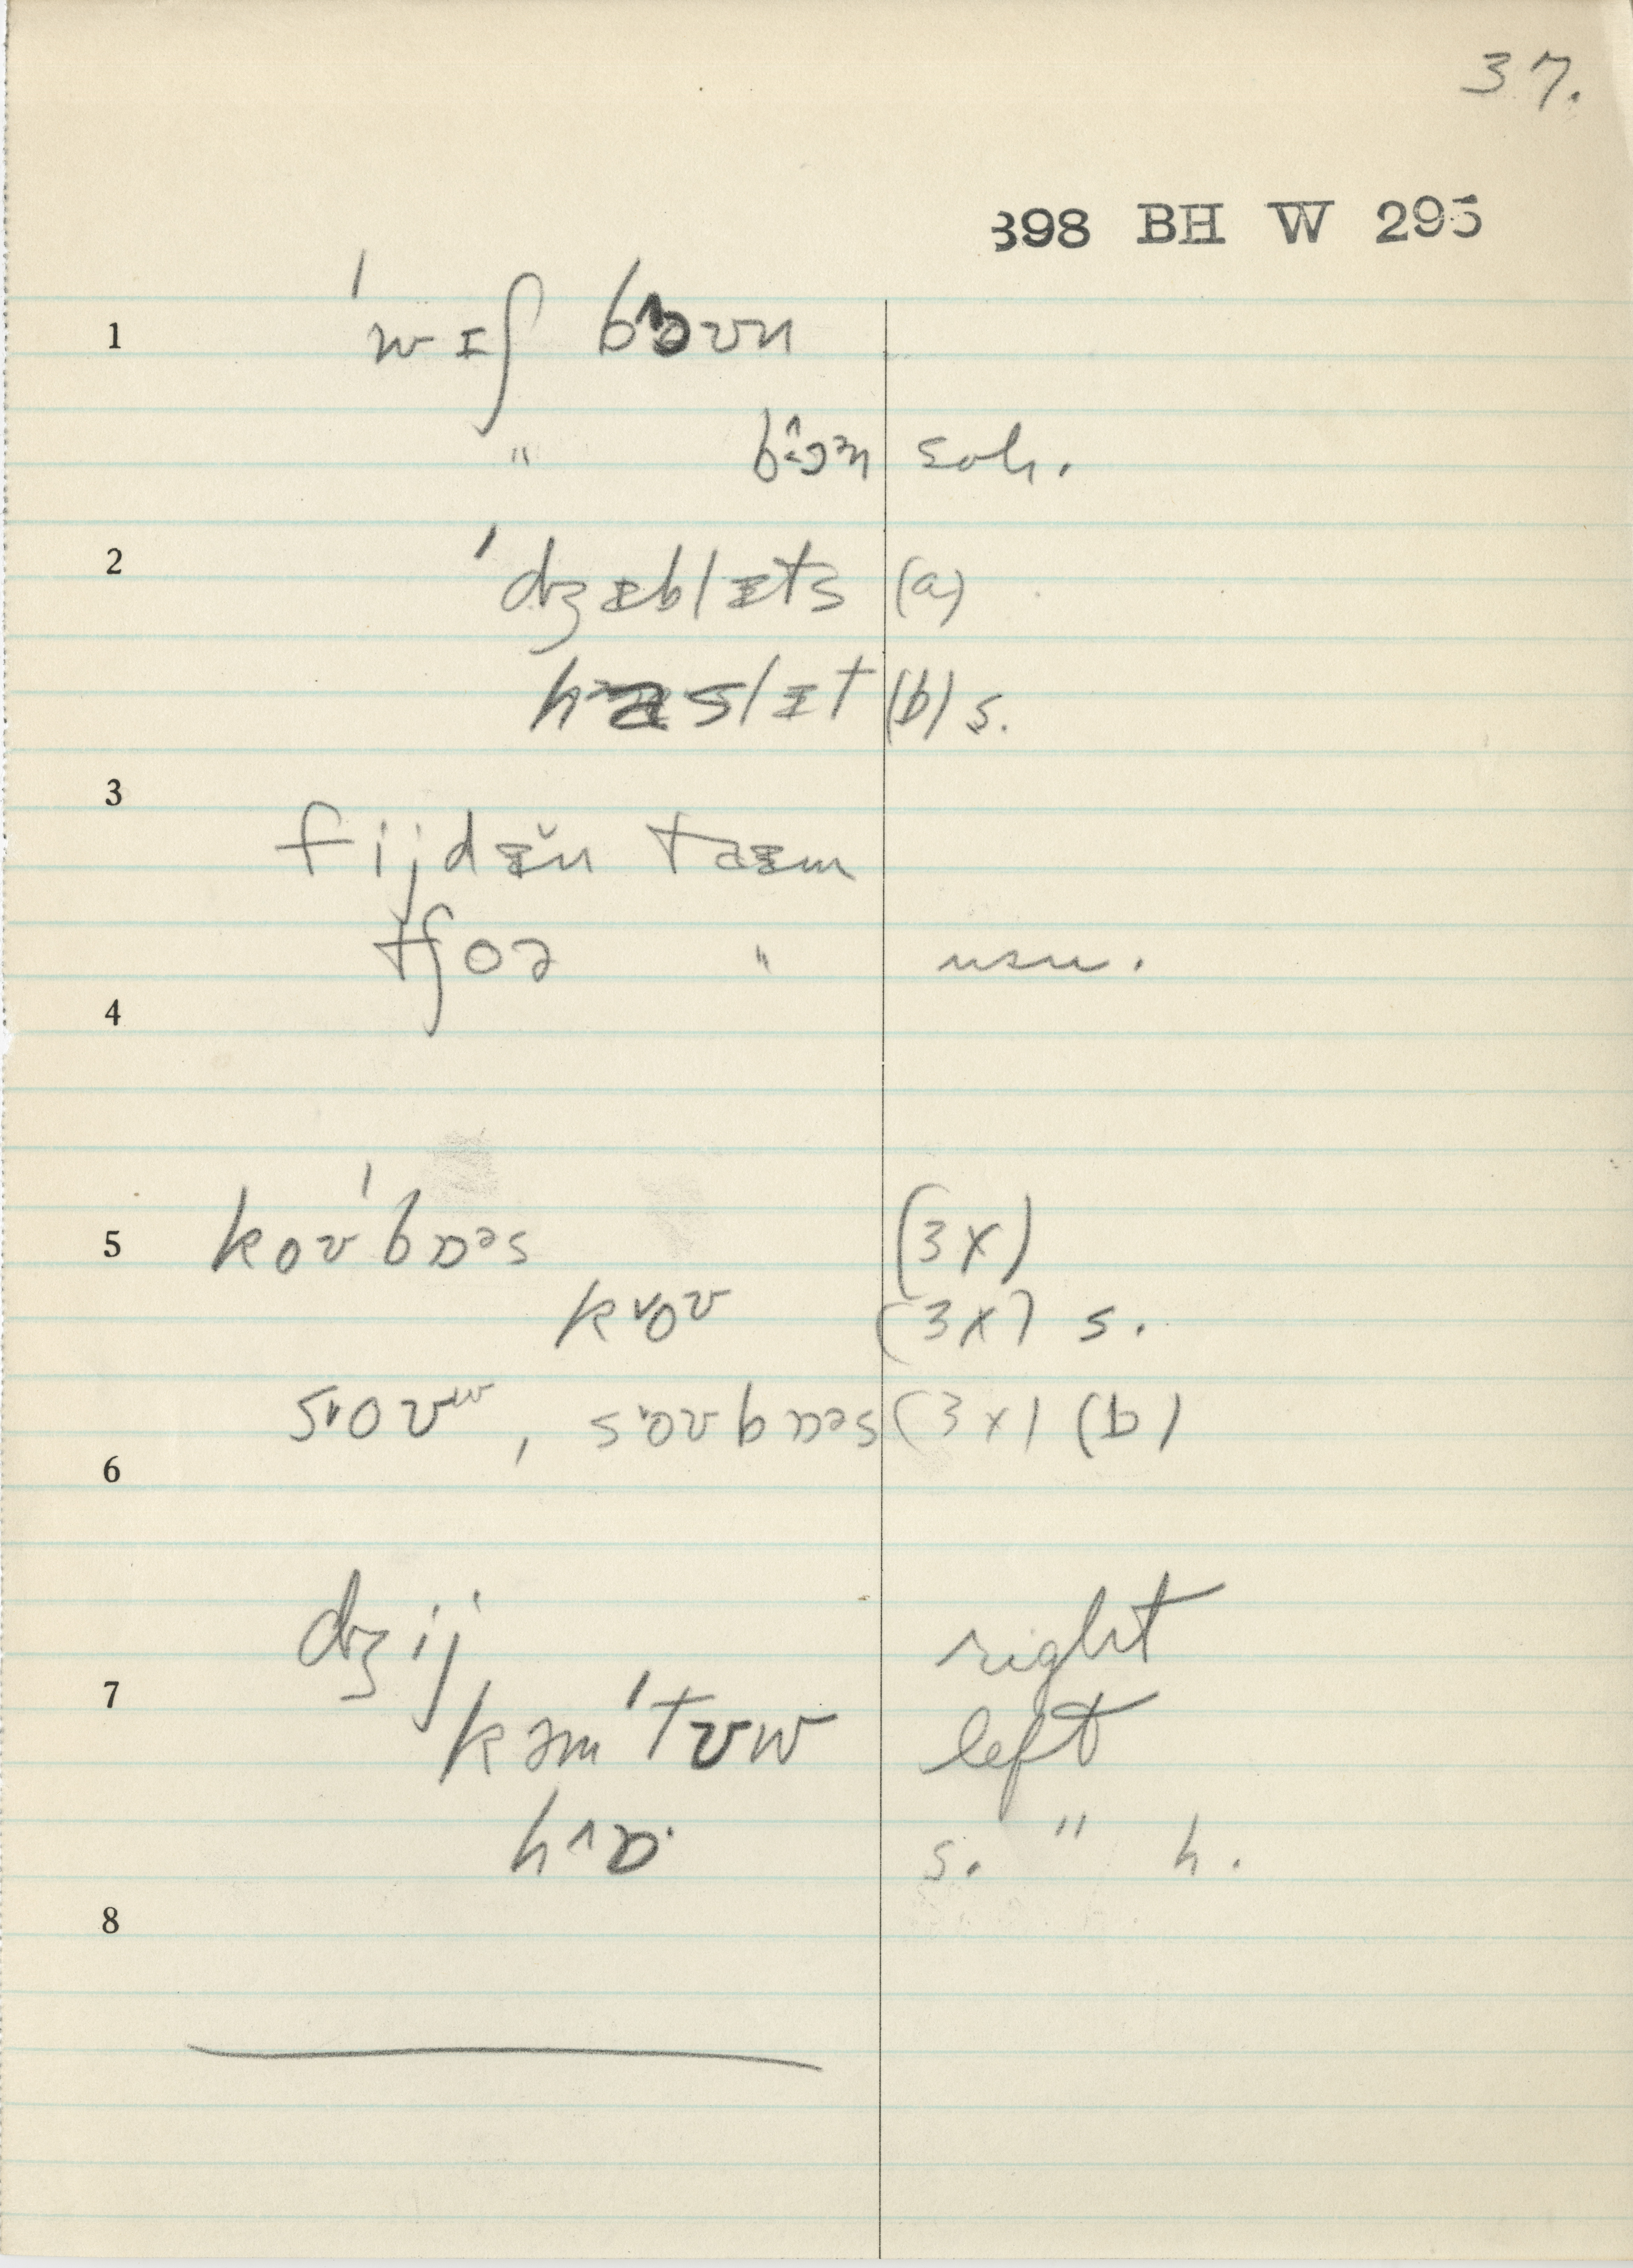 37.
398 BH W 295
1 ˈwɪʃ bɔ^ʊn
" bɔ^ən sch.
2 ˈdʒɪblɪts (a)
haslɪt (b) s.
3 fijdɪ̆n taɪm
tʃoə " usu.
4
5 koʊˈbɒəs (3x)
k˅oʊ (3x) s.
s˅oʊʷ, s˅oʊbɒəs (3x) (b)
6
dʒij right
7 kəmˈtʊw left
h^ɒ· s. " h.
8